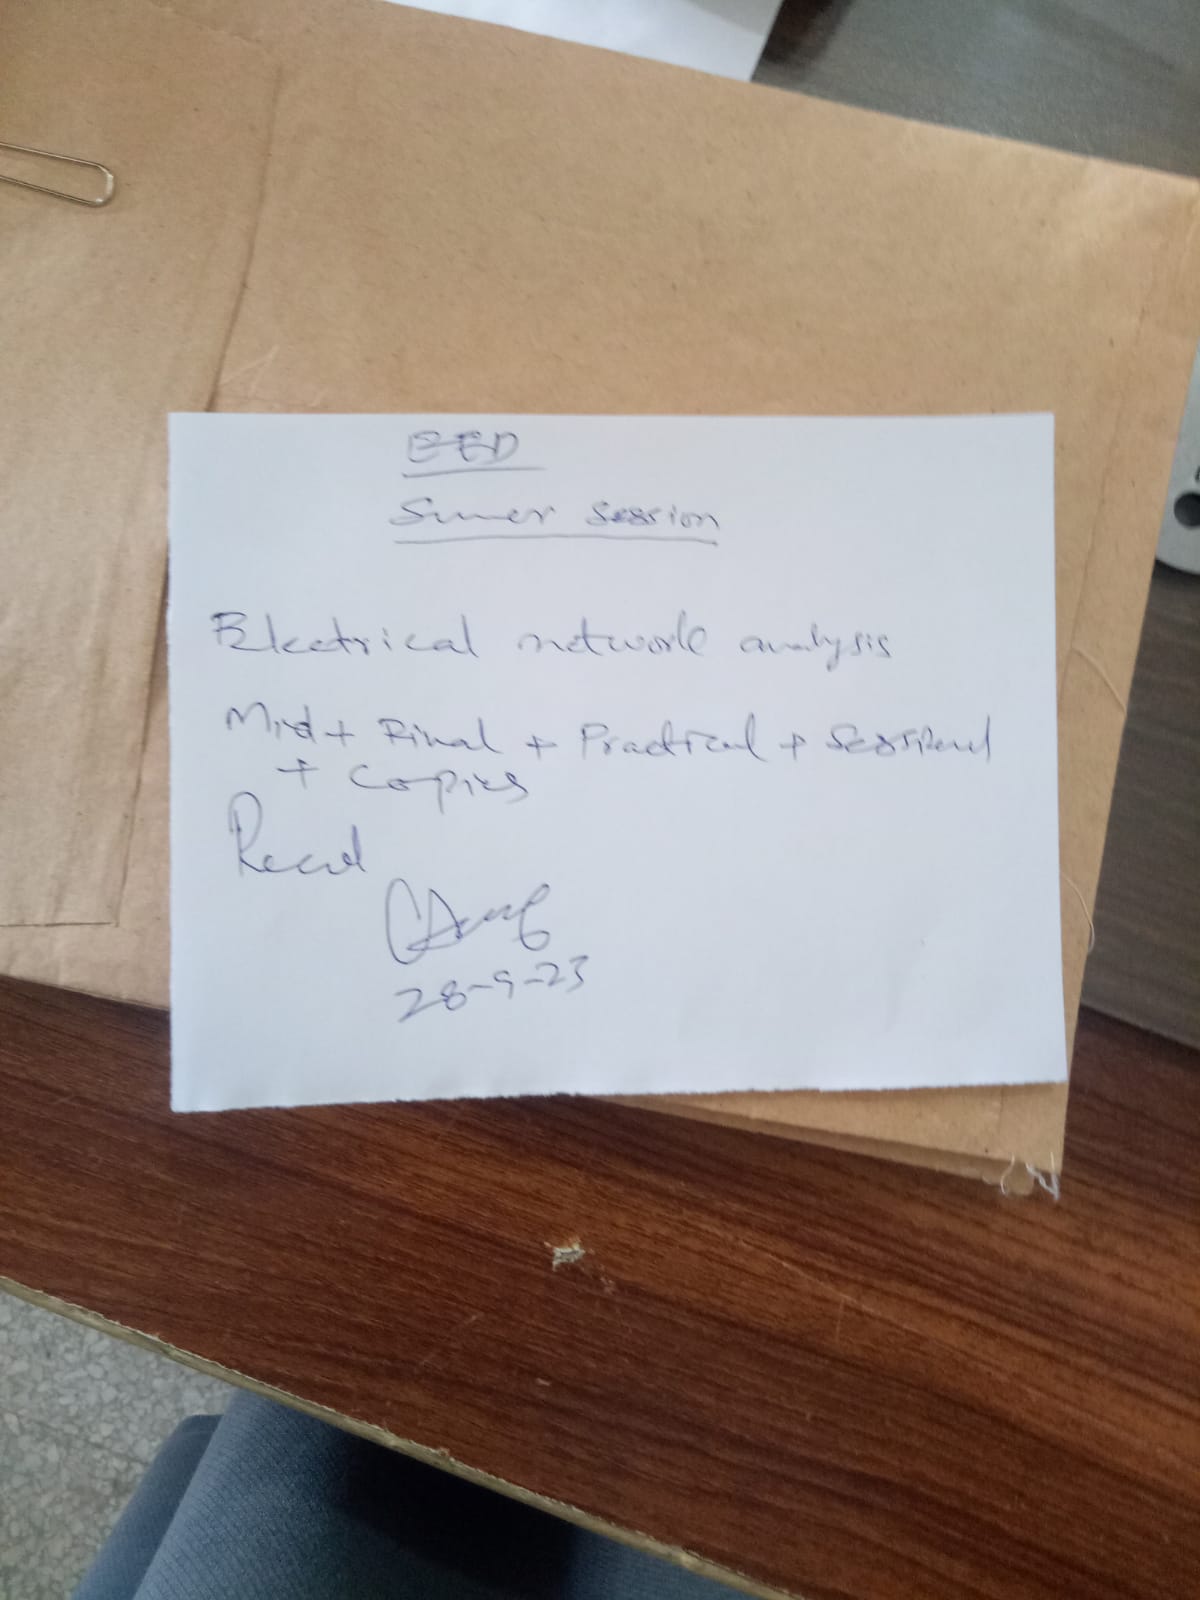 EED
Summer Session
Electrical network analysis
Mid + Final + Practical + Sessional
+ Copies
Recvd
28-9-23